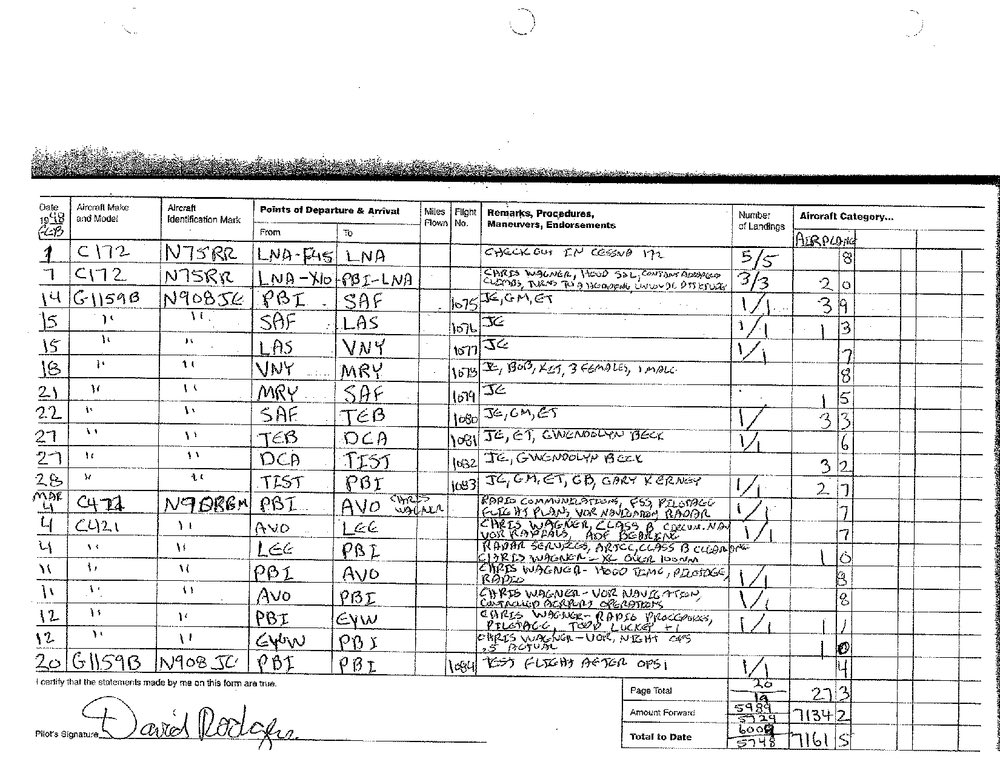 Date 1998 Aircraft Make and Model Aircraft Identification Mark Points of Departure & Arrival Miles Flown Flight No. Remarks, Procedures, Maneuvers, Endorsements Number of Landings Aircraft Category...
FEB From To AIRPLANE
1 C172 N75RR LNA-F45 LNA CHECKOUT IN CESSNA 172 5/5 8
7 C172 N75RR LNA-X10-PBI-LNA CHRIS WAGNER, 3/3 2 0
14 G1159B N908JE PBI SAF 1075 JE, GM, ET 1/1 3 9
15 " " SAF LAS 1076 JE 1/1 1 3
15 " " LAS VNY 1077 JE 1/1 7
18 " " VNY MRY 1078 JE, BOB, 3 FEMALES, 1 MALE 8
21 " " MRY SAF 1079 JE 1 5
22 " " SAF TEB 1080 JE, GM, ET 1/1 3 3
27 " " TEB DCA 1081 JE, ET, GWENDOLYN BECK 1/1 6
27 " " DCA TIST 1082 JE, GWENDOLYN BECK 3 2
28 " " TIST PBI 1083 JE, GM, ET, GB, GARY KERNEY 1/1 2 7
MAR 4 C421 PBI AVO CHRIS WAGNER RADIO COMMUNICATIONS, FSS, PILOTAGE FLIGHT PLANS, VOR NAVIGATION RADAR 7
4 C421 " AVO LEE CHRIS WAGNER, CLASS B VOR ADF BEARING 1/1 7
4 " " LEE PBI RADAR SERVICES, ARTCC, CLASS B CLEARANCE CHRIS WAGNER - XC OVER 100NM 1 0
11 " " PBI AVO CHRIS WAGNER - HOOD TIME, PILOTAGE, RADIO 1/1 8
11 " " AVO PBI CHRIS WAGNER - VOR NAVIGATION, CONTROLLED AIRPORT OPERATIONS 1/1 8
12 " " PBI EYW CHRIS WAGNER - RADIO PROCEDURES, PILOTAGE, TODD LUCKEY +1 1/1 1 1
12 " " EYW PBI CHRIS WAGNER - VOR, NIGHT OPS .5 ACTUAL 1 0
20 G1159B N908JE PBI PBI 1084 TEST FLIGHT AFTER OPS 1 1/1 4
I certify that the statements made by me on this form are true.
Page Total 20 19 27 3
Amount Forward 5989 5729 7134 2
Pilot's Signature David Rodgers Total to Date 6009 5748 7161 5